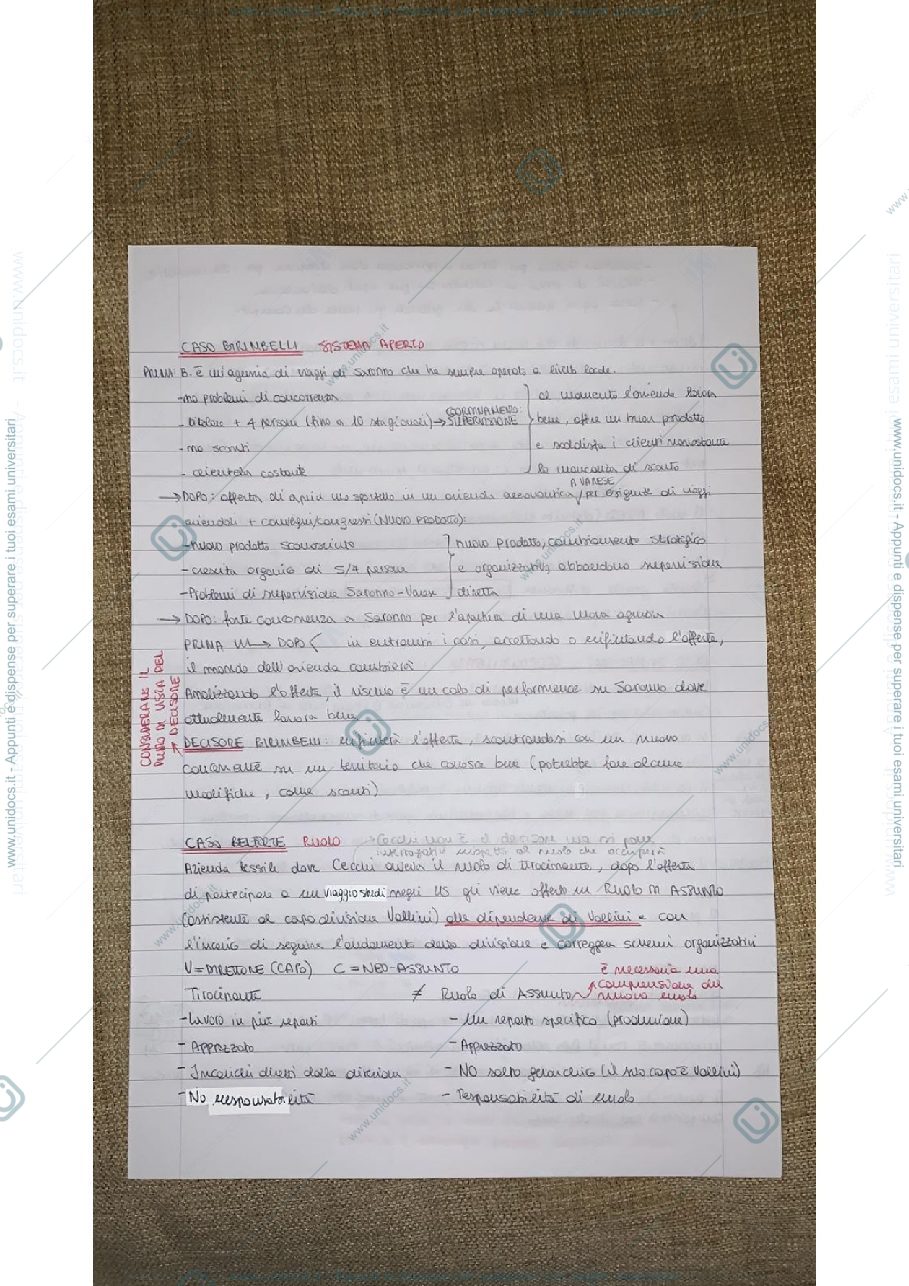 CASO BIRIMBELLI SISTEMA APERTO
PRIMA B. è un'agenzia di viaggi di Saronno che ha sempre operato a livello locale.
-no problemi di concorrenza
al momento l'azienda lavora
- titolare + 4 persone (fino a 10 stagionali) → SUPERVISIONE
bene, offre un buon prodotto
- no sconti
e soddisfa i clienti nonostante
- clientela costante
la mancanza di sconto
A VARESE
→ DOPO: offerta di aprire uno sportello in un'azienda aeronautica / per esigenze di viaggi
aziendali + convegni/congressi (NUOVO PRODOTTO):
-nuovo prodotto sconosciuto
nuovo prodotto, cambiamento strategico
- crescita organico di 5/7 persone
e organizzativo, abbandono supervisione
-Problemi di supervisione Saronno-Varese
diretta
→ DOPO: forte concorrenza a Saronno per l'apertura di una nuova agenzia
PRIMA → DOPO in entrambi i casi, accettando o rifiutando l'offerta,
il mondo dell'azienda cambierà
Analizzando l'offerta, il rischio è un calo di performance su Saronno dove
attualmente lavora bene
CONSIDERARE IL
PUNTO DI VISTA DEL
DECISORE
DECISORE BIRIMBELLI: rifiuterà l'offerta, scontrandosi con un nuovo
concorrente su un territorio che conosce bene (potrebbe fare alcune
modifiche, come sconti)
CASO BELFORTE RUOLO → Cecchi non è il decisore ma si pone
interrogativi rispetto al ruolo che occuperà
Azienda tessile dove Cecchi aveva il ruolo di tirocinante, dopo l'offerta
di partecipare a un viaggio studi negli US gli viene offerto un RUOLO DI ASSUNTO
(assistente al capo divisione Vallini) alle dipendenze di Vallini e con
l'incarico di seguire l'andamento della divisione e correggere schemi organizzativi
V = DIRETTORE (CAPO) C = NEO-ASSUNTO
è necessaria una
comprensione del
nuovo ruolo
Tirocinante ≠ Ruolo di Assunto
-Lavoro in più reparti
- Un reparto specifico (produzione)
- Apprezzato
- Apprezzato
- Incarichi diretti dalla direzione
- NO salto gerarchico (il suo capo è Vallini)
- No responsabilità
- responsabilità di ruolo
www.unidocs.it - Appunti e dispense per superare i tuoi esami universitari
www.unidocs.it - Appunti e dispense per superare i tuoi esami universitari